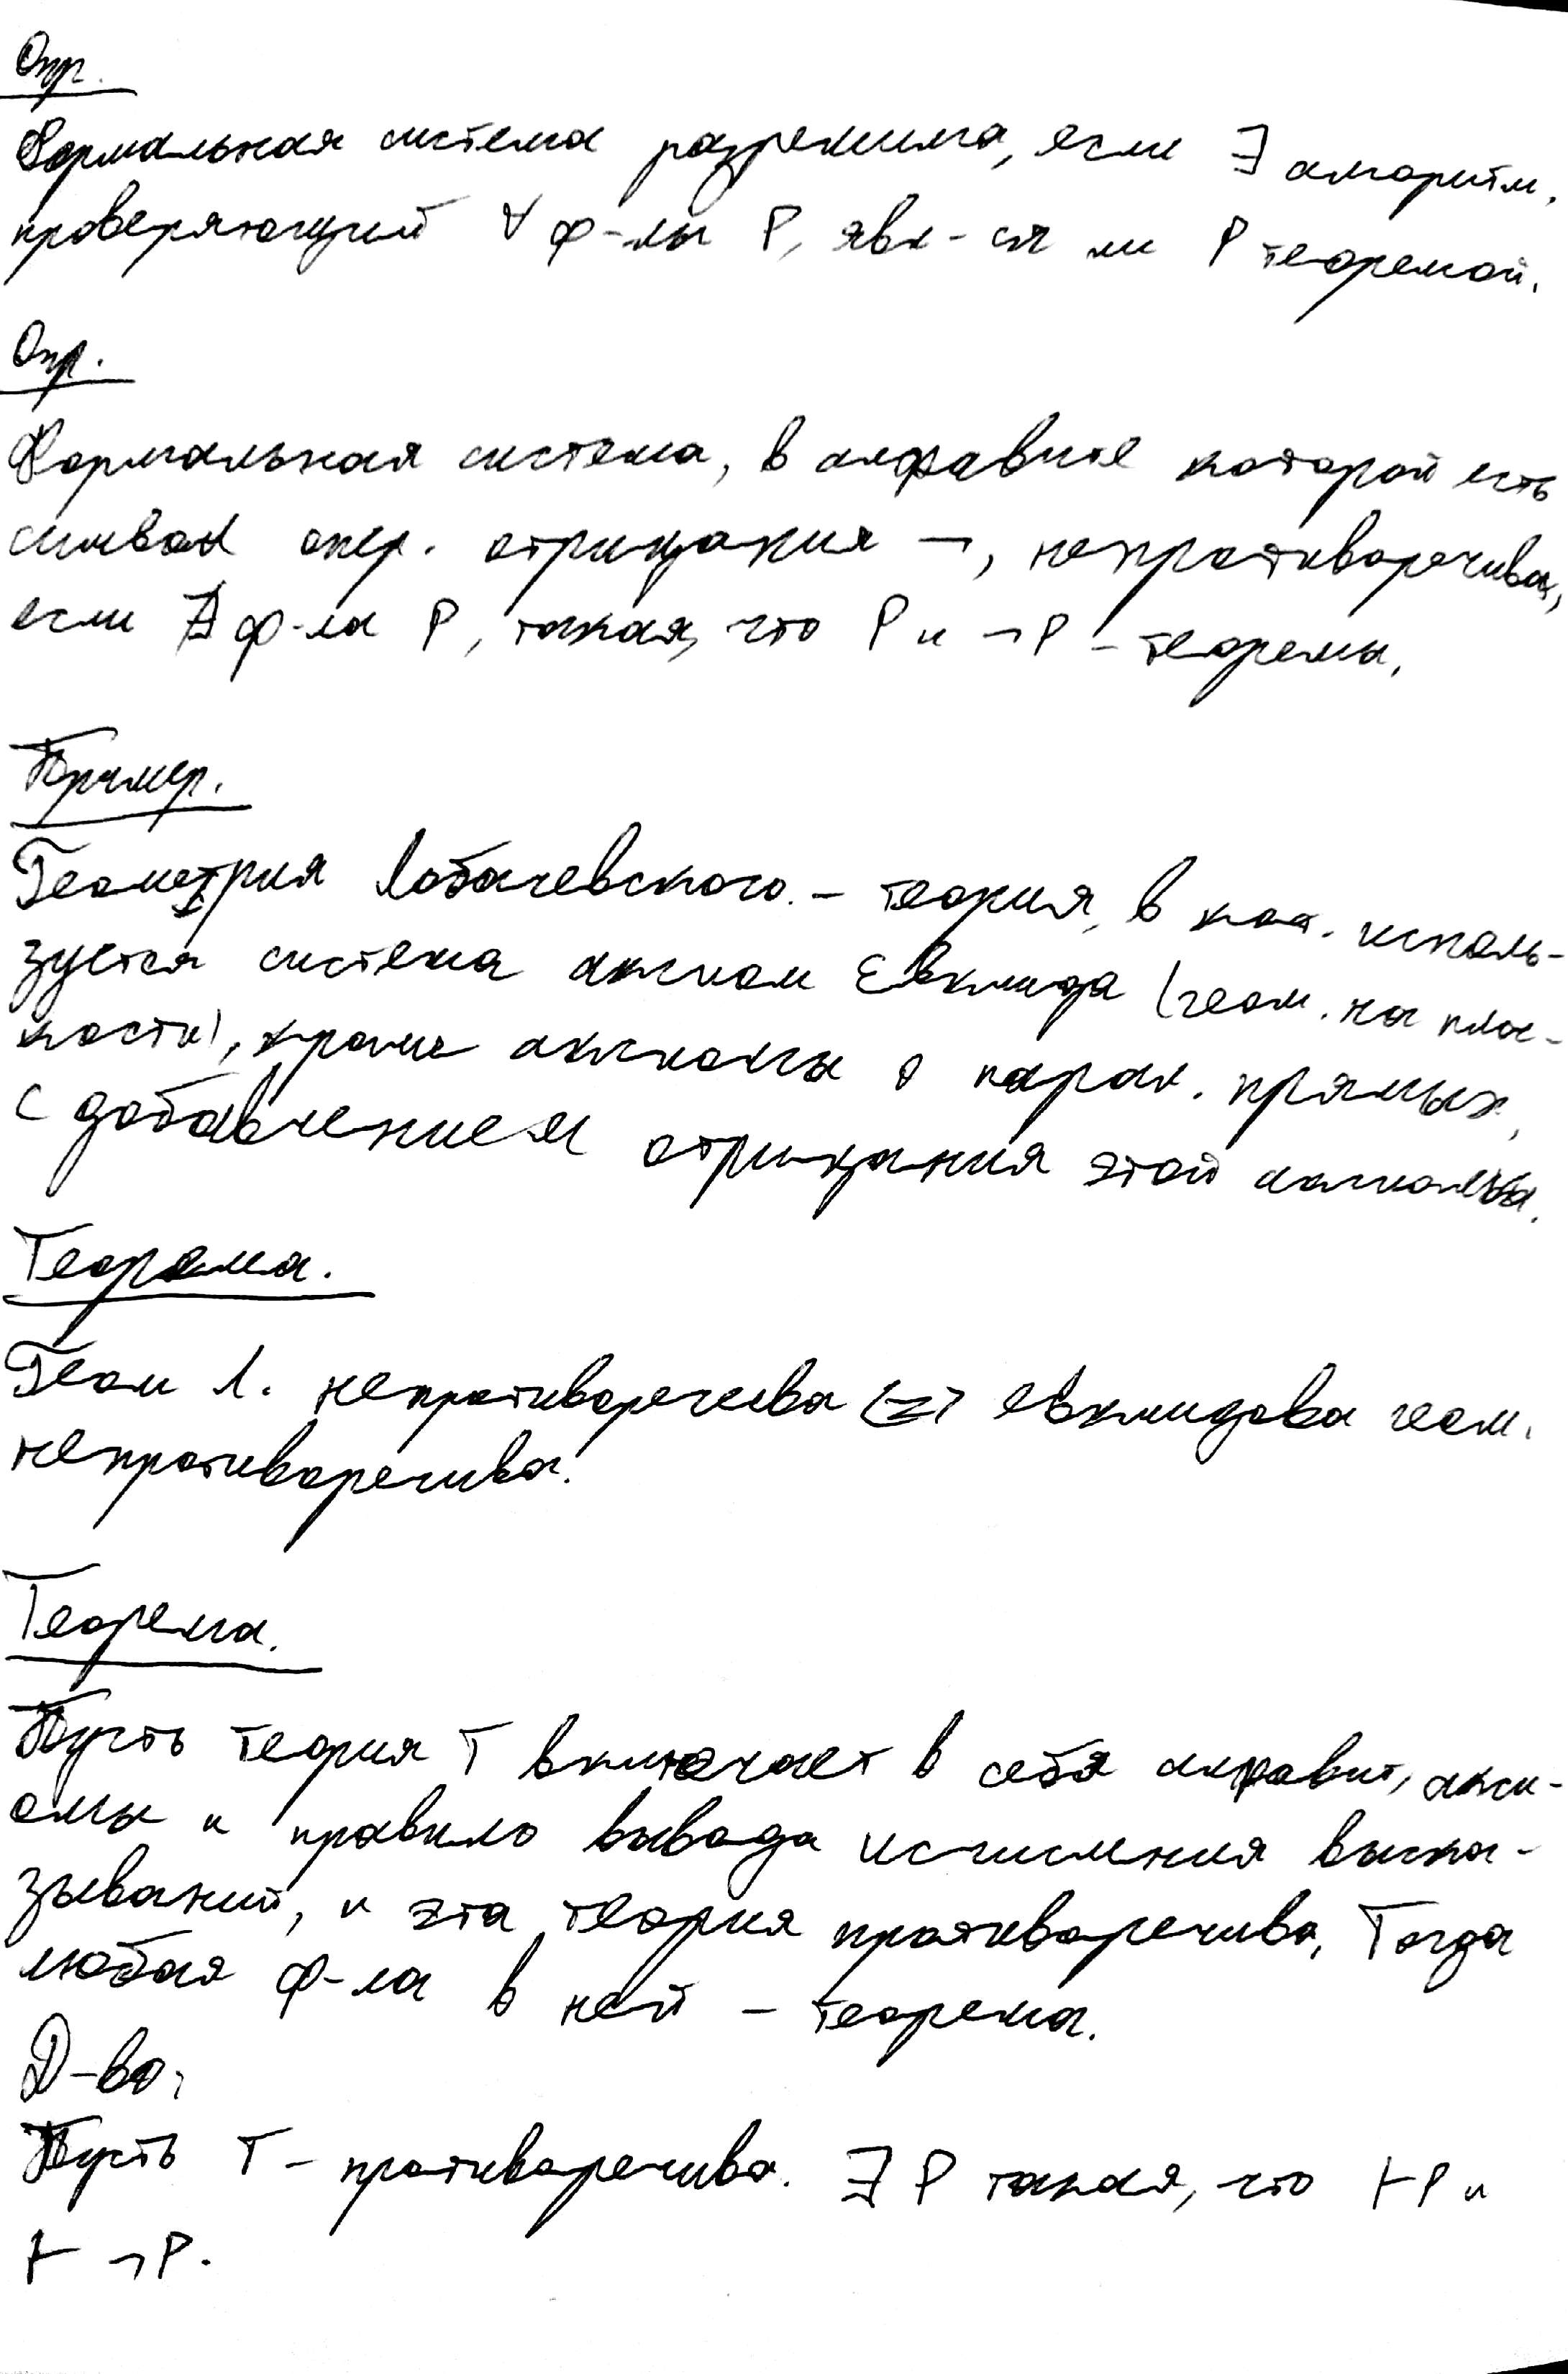 Опр.
Формальная система разрешима, если ∃ алгоритм,
проверяющий ∀ ф-лы P, явл-ся ли P теоремой.
Опр.
Формальная система, в алфавите которой есть
символ опер. отрицания ¬, непротиворечива,
если ∄ ф-ла P, такая, что P и ¬P - теоремы.
Пример.
Геометрия Лобачевского. - теория, в кот. исполь-
зуется система аксиом Евклида (геом. на плос-
кости), кроме аксиомы о парал. прямых,
с добавлением отрицания этой аксиомы.
Теорема.
Геом Л. непротиворечива <=> евклидова геом.
непротиворечива.
Теорема.
Пусть теория T включает в себя алфавит, акси-
омы и правило вывода исчисления выска-
зываний, и эта теория противоречива, Тогда
любая ф-ла в ней - теорема.
Д-во,
Пусть T - противоречива. ∃ P такая, что ⊢P и
⊢ ¬P.